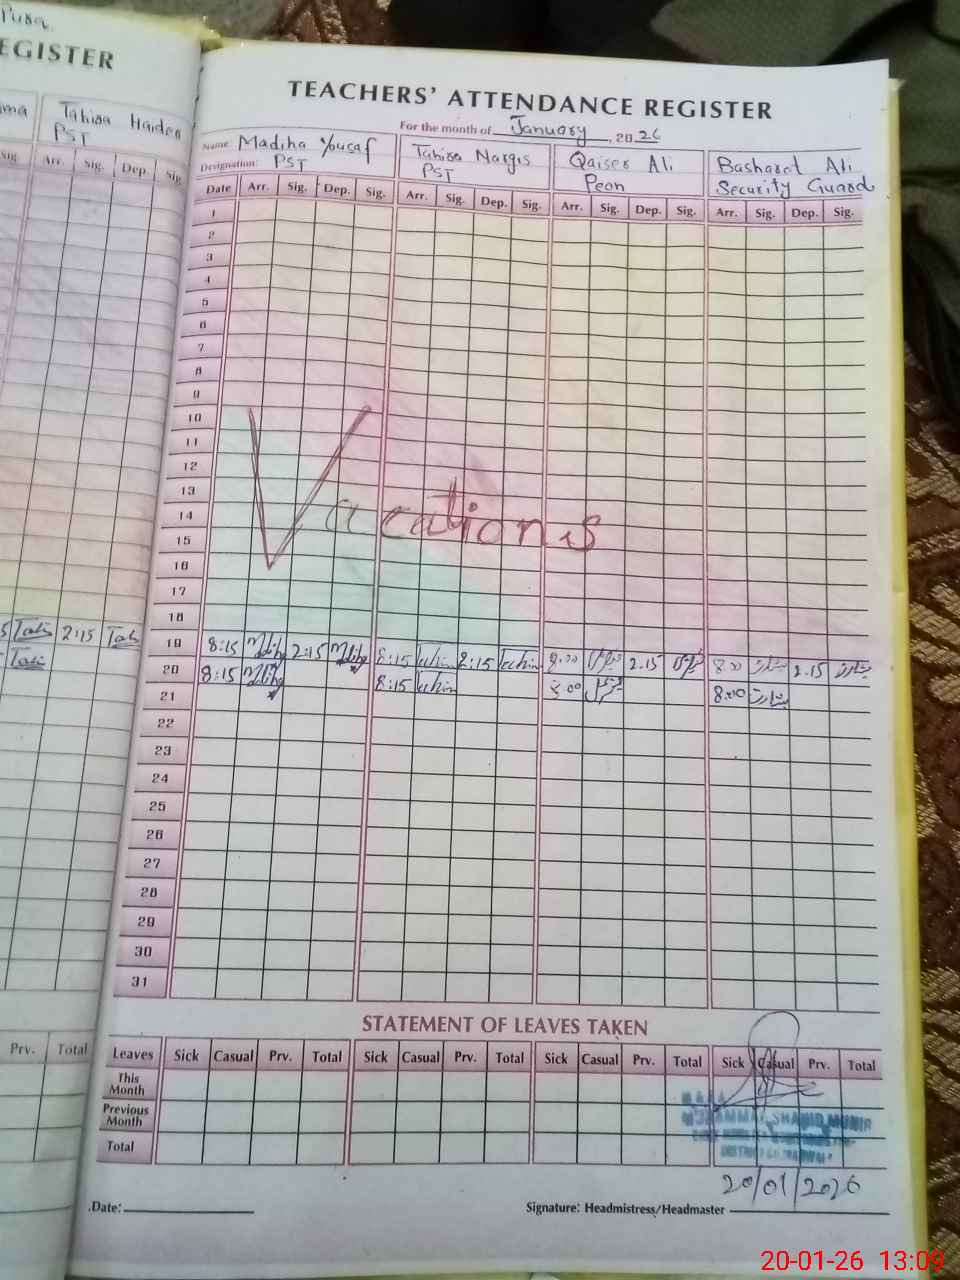 Pura
EGISTER
ma Tahira Haider
PST
Sig. Arr. Sig. Dep. Sig.
TEACHERS' ATTENDANCE REGISTER
For the month of January, 2026
Name Madiha Yousaf Tahira Nargis Qaiser Ali Basharat Ali
Designation: PST PST Peon Security Guard
Date Arr. Sig. Dep. Sig. Arr. Sig. Dep. Sig. Arr. Sig. Dep. Sig. Arr. Sig. Dep. Sig.
1
2
3
4
5
6
7
8
9
10
11
12
13
14
Vacations
15
16
17
18
2:15
19 8:15 2:15 8:15 2:15 8:00 2.15 8:00 بشارت 2.15 بشارت
20 8:15 8:15 8:00 8:00 بشارت
21
22
23
24
25
26
27
28
29
30
31
STATEMENT OF LEAVES TAKEN
Prv. Total
Leaves Sick Casual Prv. Total Sick Casual Prv. Total Sick Casual Prv. Total Sick Casual Prv. Total
This Month
Previous Month
Total
20/01/2026
Date: Signature: Headmistress/Headmaster
20-01-26 13:09